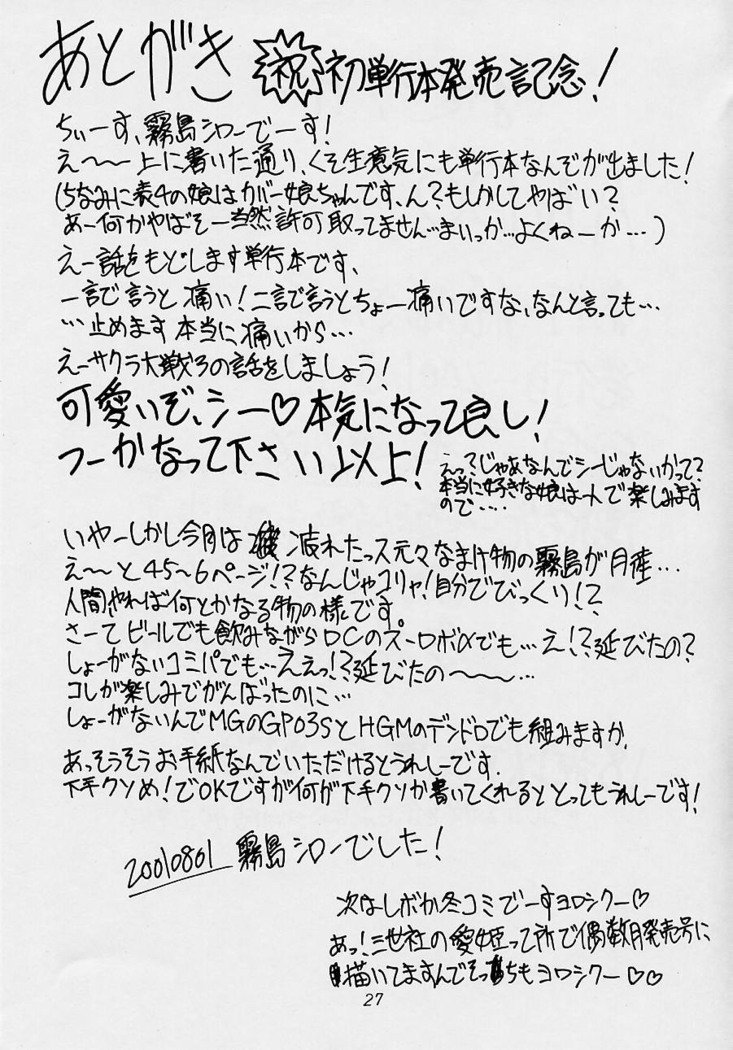 あとがき 祝 初単行本発売記念！
ちぃーす、霧島シローでーす！
え〜〜上に書いた通り、くそ生意気にも単行本なんぞが出ました！
(ちなみに表4の娘はカバー娘ちゃんです、ん？もしかしてやばい？
あー何かやばそー当然許可取ってません…まいっか…よくねーか…)
えー話をもどします単行本です、
一言で言うと痛い！二言で言うとちょー痛いですな、なんと言っても…
…止めます本当に痛いから…
えーサクラ大戦3の話をしましょう！
可愛いぞ、シー♡本気になって良し！
つーかなって下さい以上！
えっ？じゃあなんでシーじゃないかって？
本当に好きな娘は一人で楽しみます
ので……
いやーしかし今月は疲れたっス元々なまけ物の霧島が月産…
え〜と45〜6ページ！？なんじゃコリャ！自分でびっくり！？
人間やれば何とかなる物の様です。
さーてビールでも飲みながらDCのスーロボαでも…え！？延びたの？
しょーがないコミパでも…ええっ！？延びたの〜〜〜…
コレが楽しみでがんばったのに…
しょーがないんでMGのGP03SとHGMのデンドロでも組みますか、
あっそうそうお手紙なんでいただけるとうれしーです．
下手クソめ！でOKですが何が下手クソか書いてくれるととってもうれしーです！
20010801 霧島シローでした！
次はレボか冬コミでーすヨロシクー♡
あっ！三世社の愛姫って所で偶数月発売号に
描いてますんでそっちもヨロシクー♡♡
27